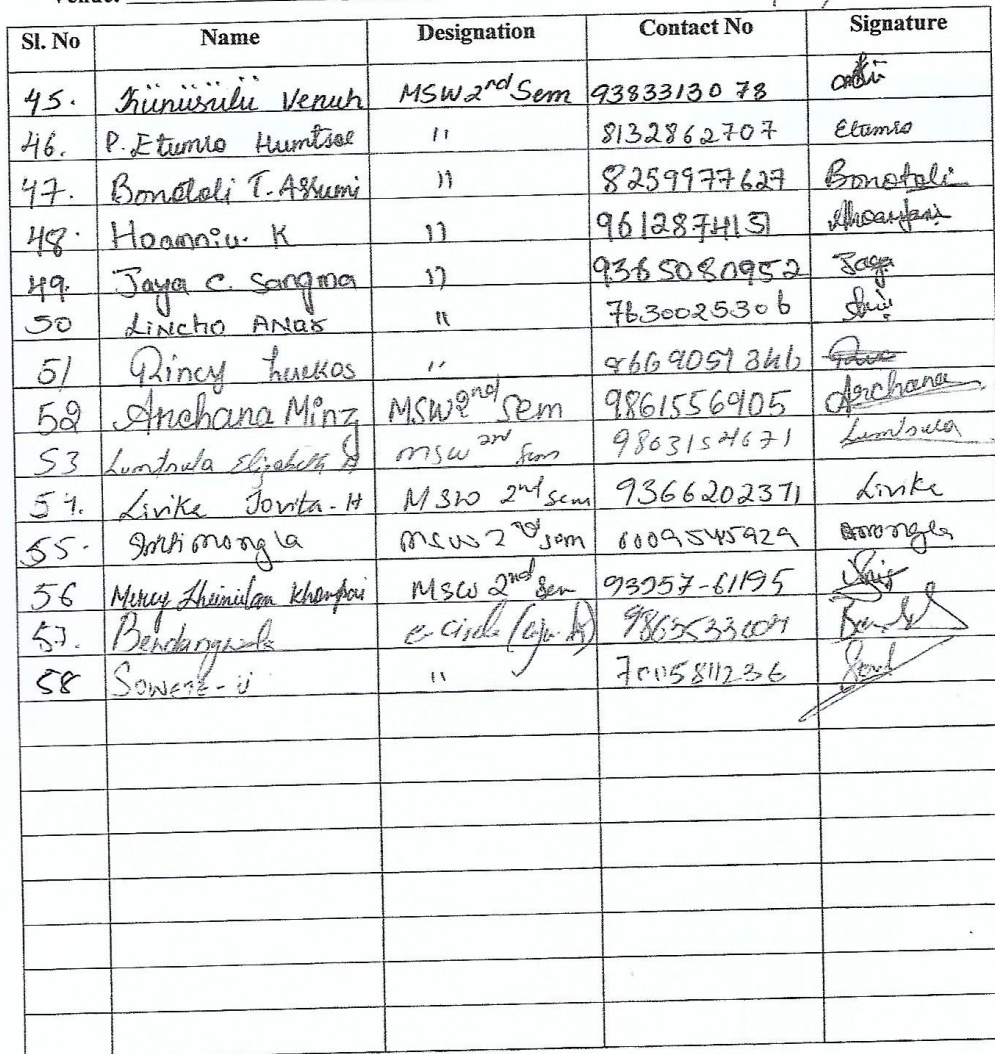 Venue:
Sl. No Name Designation Contact No Signature
45. Künüsülü Venuh MSW 2nd Sem 9383313078
46. P. Etumio Humtsoe " 8132862707 Etumio
47. Bonotoli T. Assumi " 8259977627 Bonotoli
48. Hoanniu. K " 9612874131
49. Jaya C. Sangma " 9365080952 Jaya
50 Lincho ANAR " 7630025306
51 Rincy "
52 Archana Minz MSW 2nd Sem 9861556905 Archana
53 Lumtsula Elizabeth MSW 2nd Sem 9863154671 Lumtsula
54. Livike Jovita-H MSW 2nd Sem 9366202371 Livike
55. MSW 2nd Sem 6009545929
56 Mercy MSW 2nd Sem 93957-61195
57. e-circle
58 "